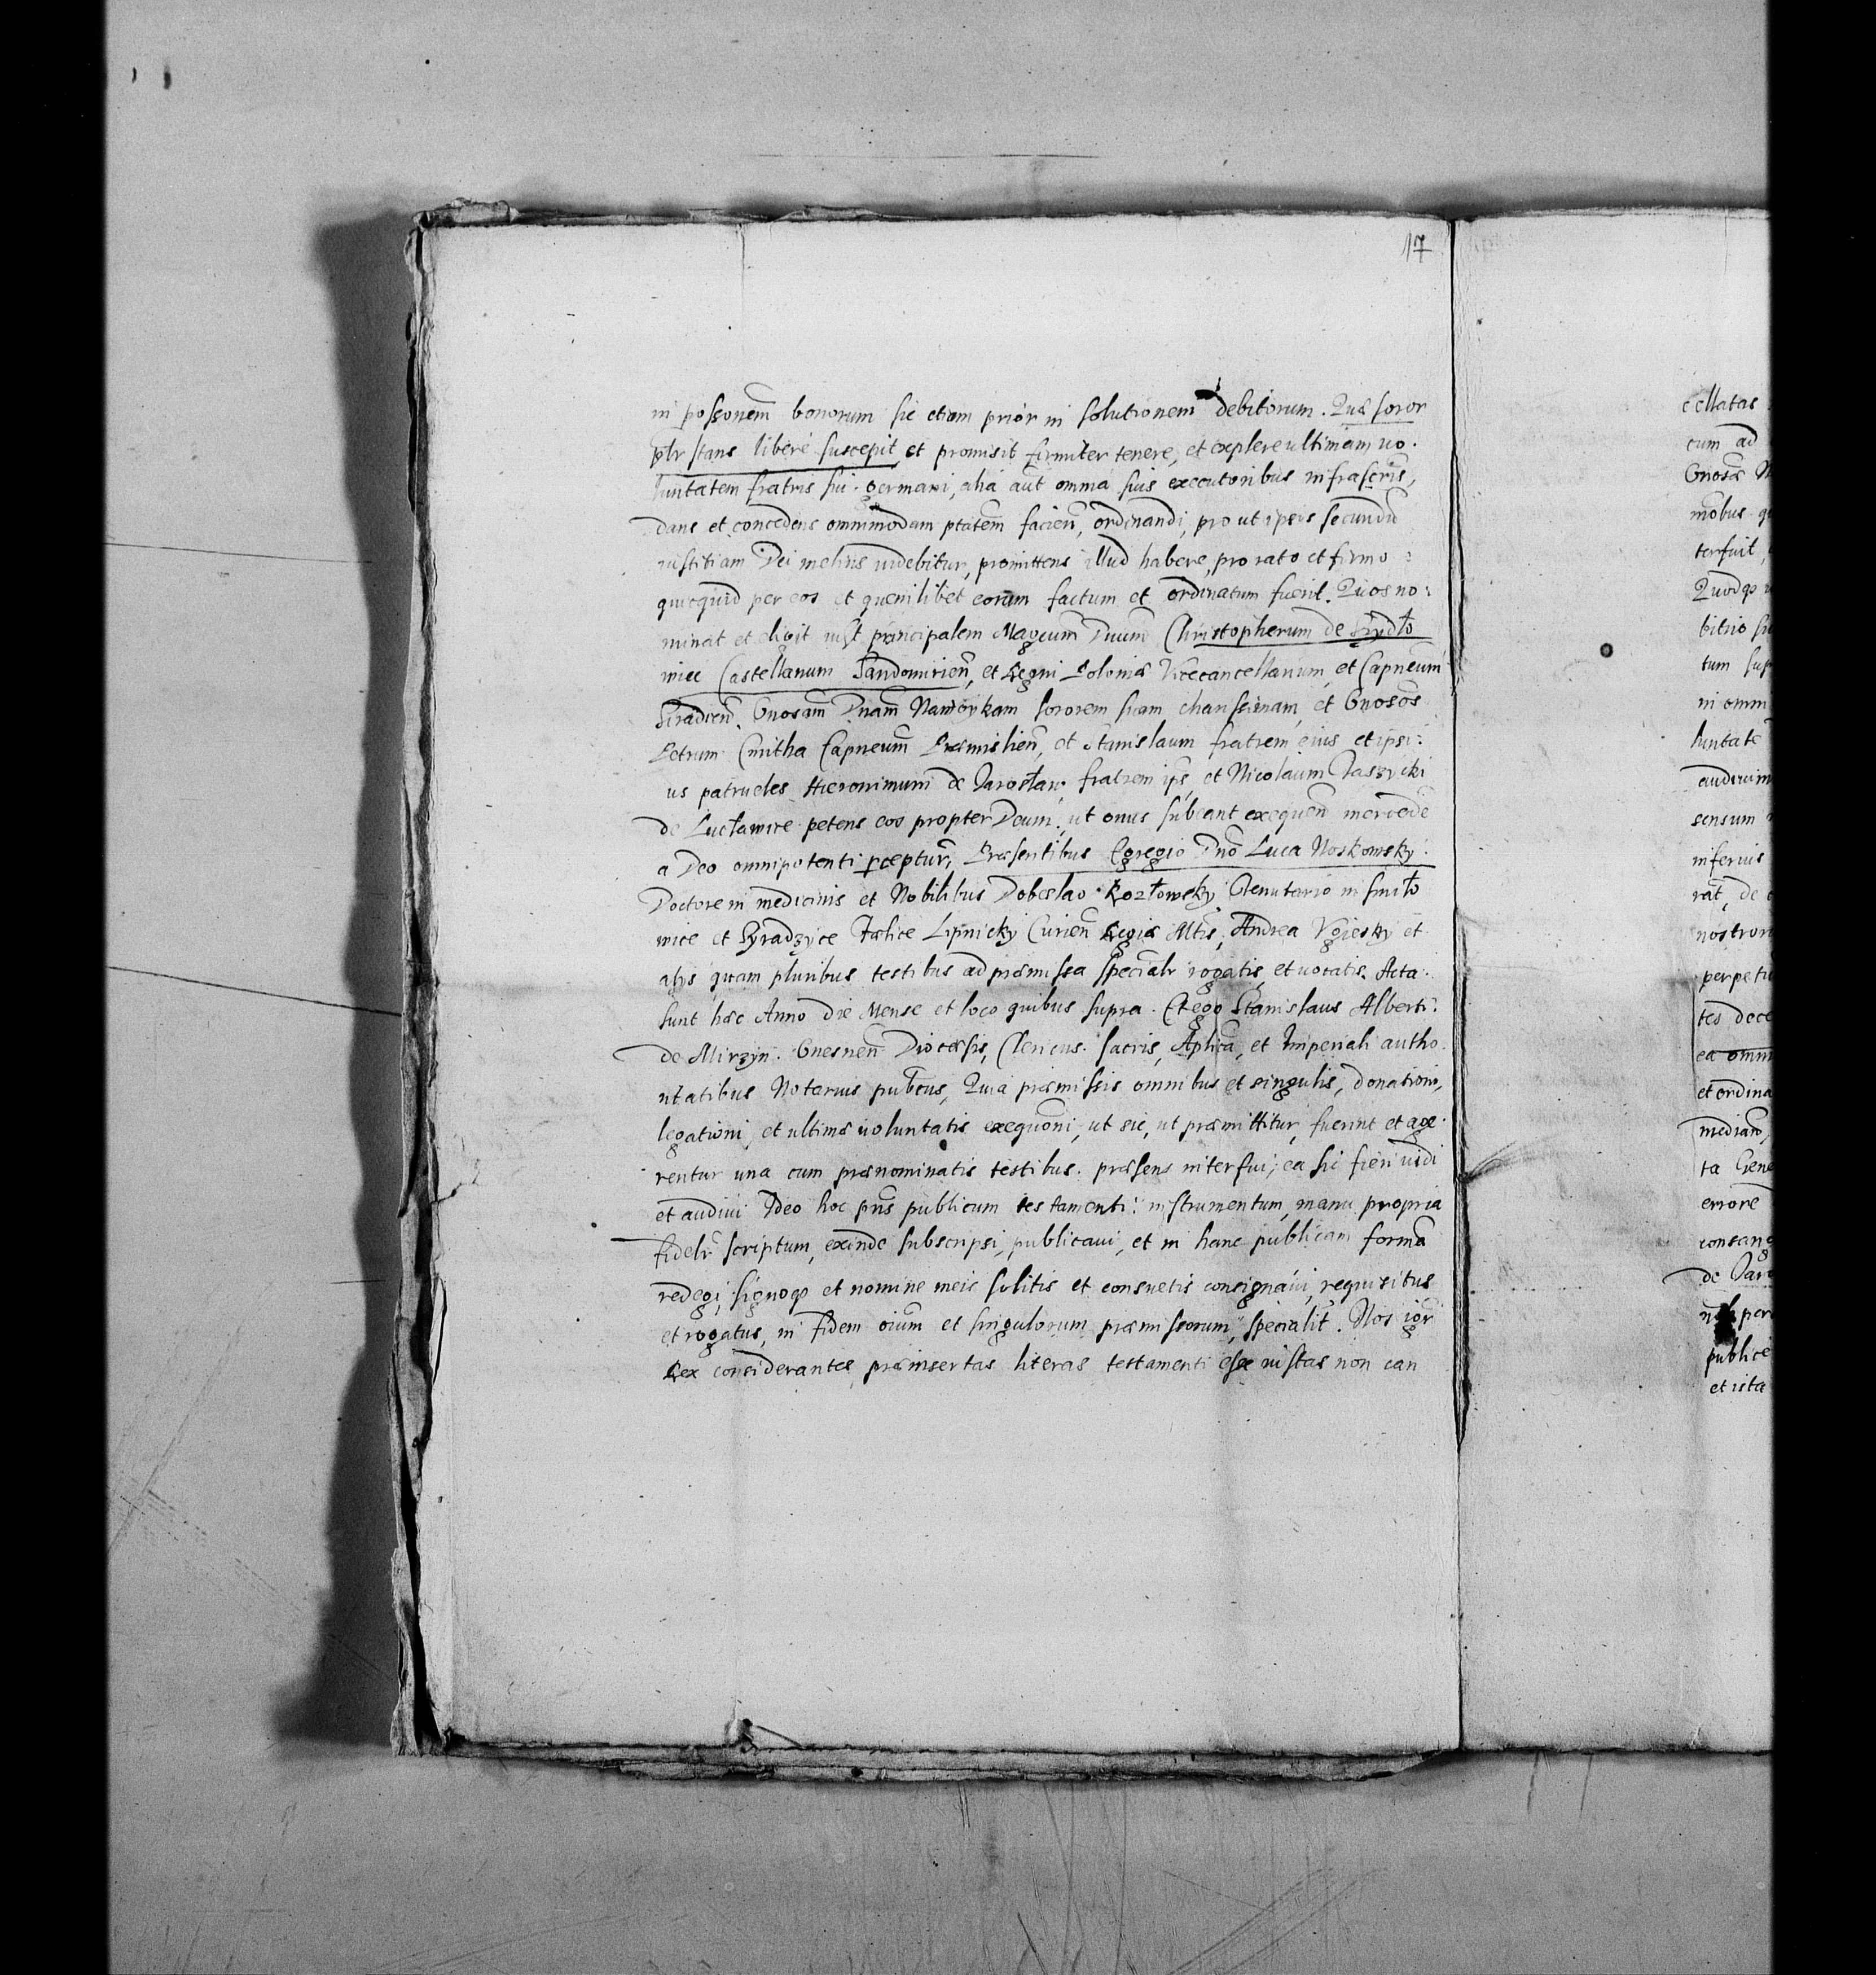 17
in possonem bonorum sic etiam prior in solutionem debitorum. Quæ soror
plr stans liberè suscepit, et promisit firmiter tenere, et explere ultimam uo.
luntatem fratris sui germani, alia aut omnia suis executoribus infrascris,
dans et concedens omnimodam ptatem facien, ordinandi, pro ut ipsis secundu
iustitiam Dei melius uidebitur, promittens illud habere, pro rato et firmo:
quicquid per eos et quemlibet eorum factum et ordinatum fuerit. Quos no:
minat et eligit principalem Magcum Dnum Christopherum de Szydło
wiec Castellanum Sandomirien, et Regni Poloniæ Vicecancellarium, et Capneum
Siradien. Gnosam Dnam Nawoykam sororem suam charissimam, et Gnosos
Petrum Cmitha Capneum Præmislien, et Stanislaum fratrem eius et ipsi:
us patrueles Hieronimum de Jarosław fratrem ips, et Nicolaum Taszycki
de Lucławice petens eos propter Deum, ut onus subeant exequen mercede
a Deo omnipotenti rceptur, Præsentibus Egregio Dno Luca Noskowsky
Doctore in medicinis et Nobilibus Dobeslao Kozłowsky Tenutario in Smiło
wice et Syradzyce Fælice Lipnicky Curien Regiæ Mltis, Andrea Vgiesky et
alijs quam pluribus testibus ad præmissa specialr rogatis, et uocatis. Acta
sunt hæc Anno Die Mense et loco quibus supra. Et ego Stanislaus Alberti
de Mirzyn. Gnesnen Diocesis, Clericus sacris, Aplica, et Imperiali autho
ritatibus Notarius publcus, Quia præmissis omnibus et singulis, donationi,
legationi, et ultimæ uoluntatis exequoni, ut sic, ut præmittitur, fierint et age
rentur una cum prænominatis testibus. præsens interfui, ea sic fieri uidi
et audiui Ideo hoc pns publicum testamenti instrumentum, manu propria
fidelr scriptum, exinde subscripsi, publicaui, et in hanc publicam forma
redegi, signoqȝ et nomine meis solitis et consuetis consignaui, requisitus
et rogatus, in fidem oium et singulorum præmissorum, specialit. Nos igr
Rex considerantes præinsertas literas testamenti esse iustas non can
cellatas
cum ad
Gnosæ
mobus
terfuit
Quodqȝ
bitrio
tum
in omni
luntate
audiuim
sensum
inferius
rat, de
nostror
perpetu
tes dece
ea omni
et ordina
median,
ta Gene
errore
consang
de Jaro
per
publice
et ista